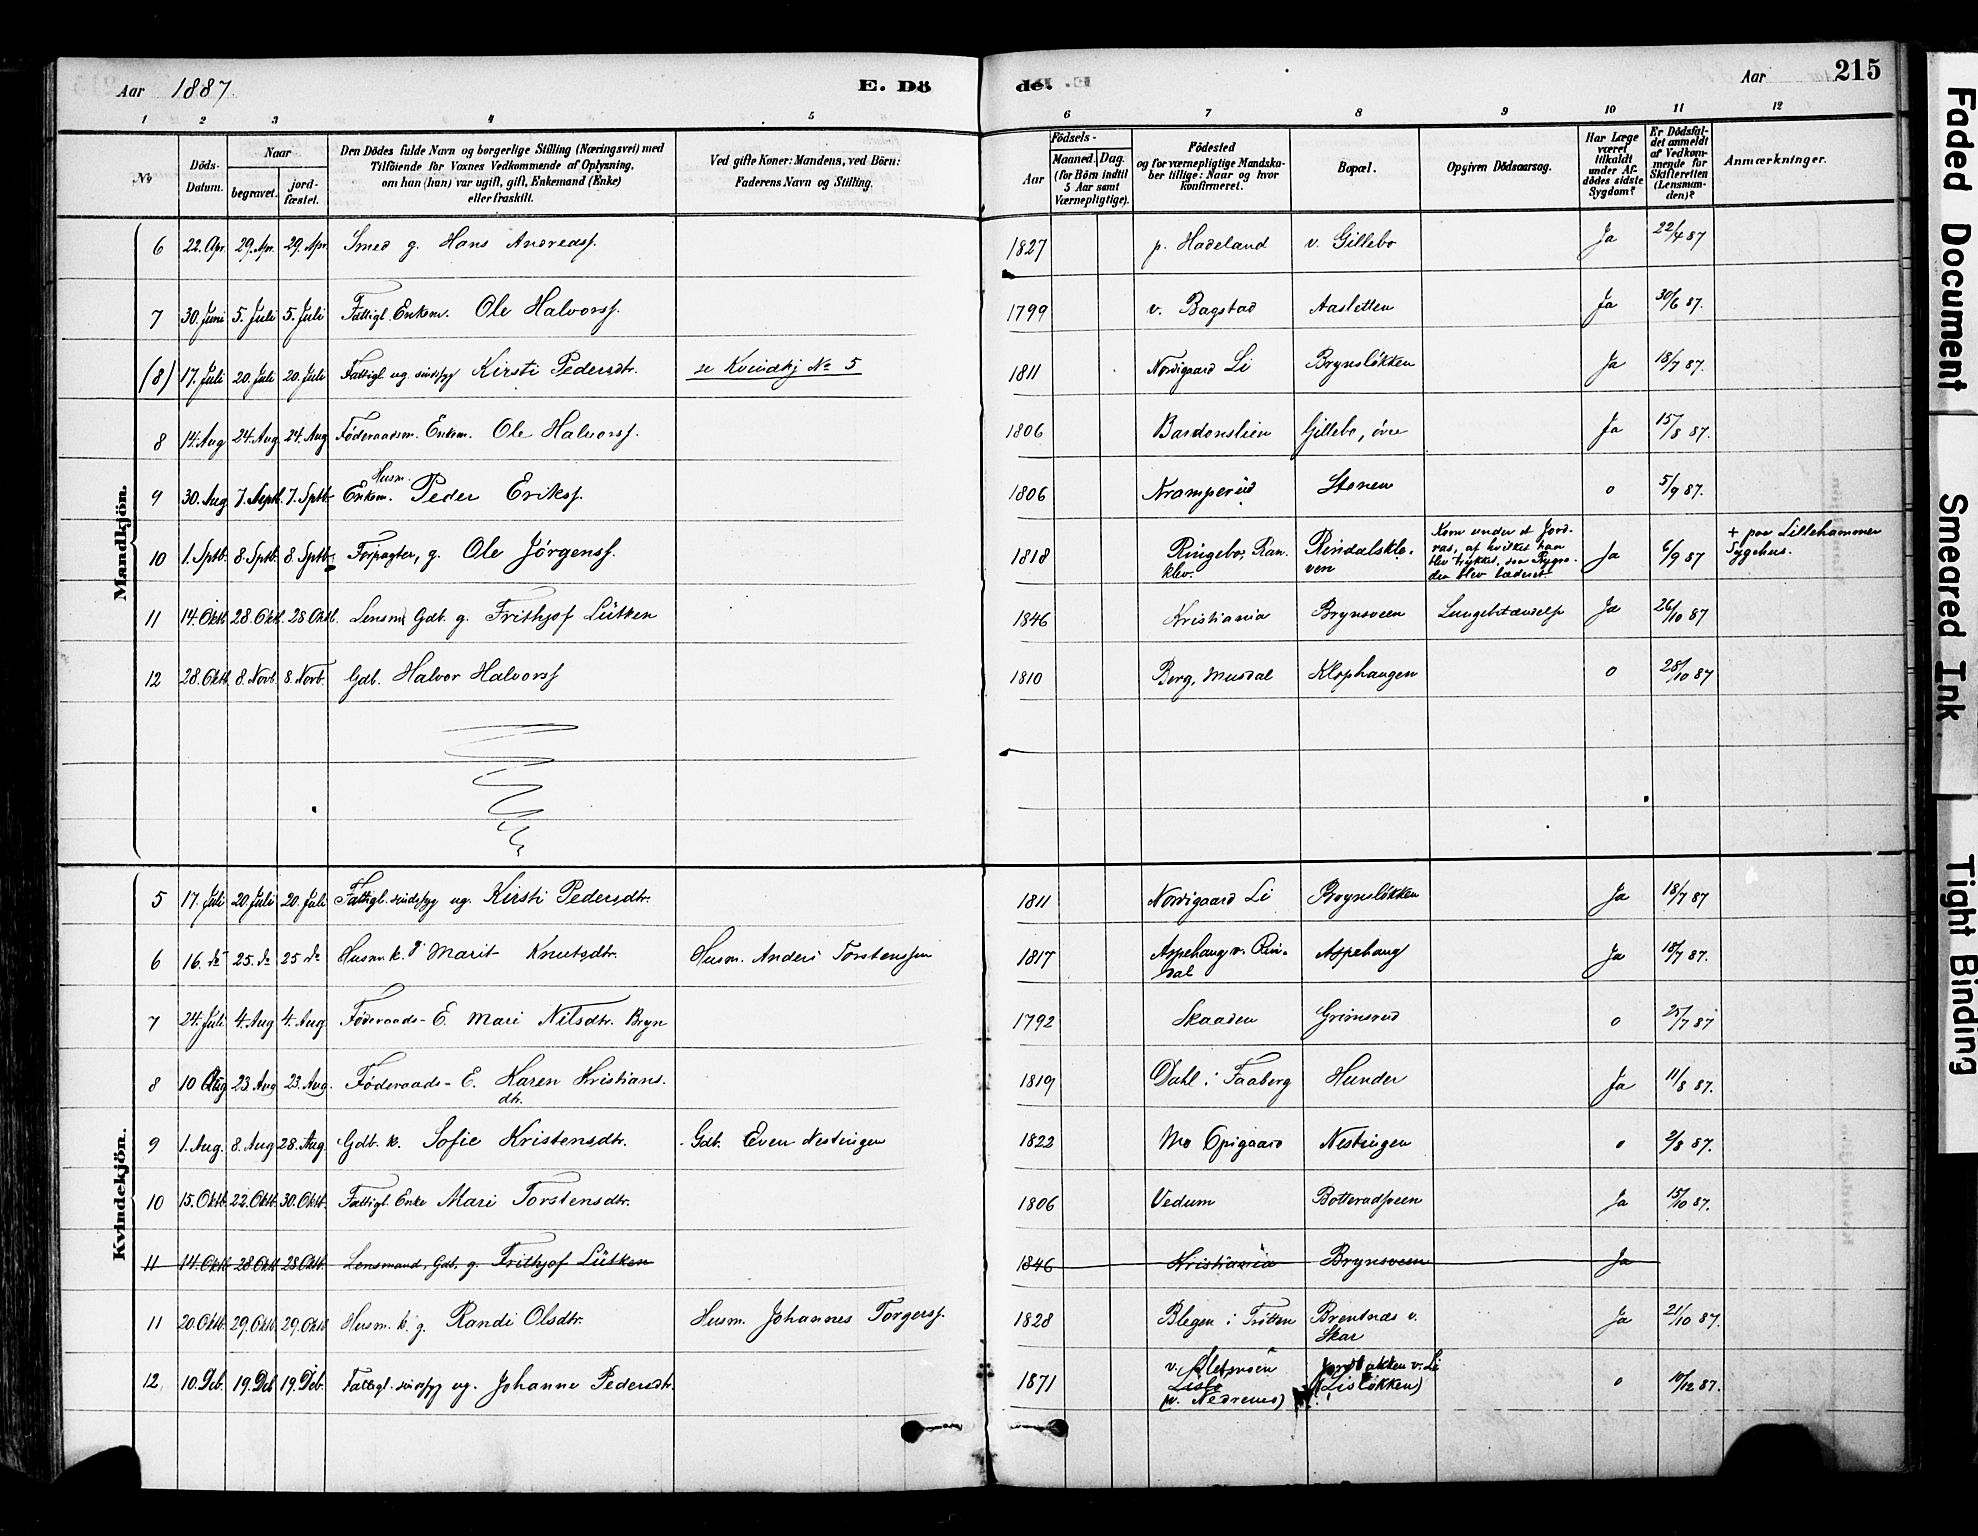 Aar 1887
E. Dö
de.
Aar
215
1 2 3 4 5 6 7 8 9 10 11 12
No
Döds-Datum.
Naar
begravet.
jord-fæstet.
Den Dödes fulde Navn og borgerlige Stilling (Næringsvei) med
Tilföiende for Voxnes Vedkommende af Oplysning,
om han (hun) var ugift, gift, Enkemand (Enke)
eller fraskilt.
Ved gifte Koner: Mandens, ved Börn:
Faderens Navn og Stilling.
Födsels-
Aar
Maaned. Dag.
(for Börn indtil
5 Aar samt
Værnepligtige).
Födested
og for værnepligtige Mandska-
ber tillige: Naar og hvor
konfirmeret.
Bopæl.
Opgiven Dödsaarsag.
Har Læge
været
tilkaldt
under Af-
dödes sidste
Sygdom?
Er Dödsfal-
det anmeldt
af Vedkom-
mende for
Skifteretten
(Lensman-
den)?
Anmærkninger.
Mandkjön.
6 22. Apr. 29. Apr. 29. Apr. Smed g. Hans Andreass. 1827 p. Hadeland v. Gillebo Ja 22/4 87
7 30. Juni 5. Juli 5. Juli Fattigl. Enkem. Ole Halvorss. 1799 v. Bagstad Aasletten Ja 30/6 87.
(8) 17. Juli 20. Juli 20. Juli Fattigl ug. sindssyg Kirsti Pedersdtr. se Kvindekj No 5 1811 Nordigaard Li Brynsløkken Ja 18/7 87.
8 14. Aug 24. Aug 24. Aug Føderaadsm. Enkem. Ole Halvorss. 1806 Bardonslien Gillebo, övre Ja 15/8 87.
Husm.
9 30. Aug 7. Septb. 7. Sptb. Enkem. Peder Erikss. 1806 Kramperud Stenen o 5/9 87.
10 1. Sptb. 8. Sptb. 8. Sptb. Forpagter, g. Ole Jörgenss. 1818 Ringebo, Ran-
klev. Rindalsklo-
ven Kom under et Jord-
ras, af hvilket han
blev trykket, saa Rygra-
den blev læderet Ja 6/9 87 + paa Lillehammer
Sygehus.
11 14. Oktb 28. Oktb. 28 Oktb. Lensm Gdb. g. Frithjof Lütken 1846 Kristiania Brynsveen Lungebetændelse Ja 26/10 87
12 28. Oktb. 8. Novb. 8. Novb. Gdb. Halvor Halvorss 1810 Berg, Musdal Klophaugen o 28/10 87
Kvindekjön.
5 17. Juli 20. Juli 20. Juli Fattigl. sindssyg ug. Kirsti Pedersdtr. 1811 Nordigaard Li Brynsløkken Ja 18/7 87
6 16. do 25. do 25 do Husm. k. g Marit Knutsdtr. Husm. Anders Torstenssen 1817 Aspehaug v. Rin-
dal Aspehaug Ja 18/7 87.
7 24. Juli 4. Aug 4. Aug Føderaads-E. Mari Nilsdtr. Bryn 1792 Skaaden Grimsrud o 25/7 87
8 10 Aug 23. Aug 23. Aug. Føderaads-E. Karen Kristians-
dtr. 1819 Dahl i Faaberg Hunder Ja 11/8 87.
9 1. Aug. 8. Aug 28. Aug. Gdb. k. Sofie Kristensdtr. Gdb. Even Nestingen 1822 Mo Opigaard Nestingen o 2/8 87.
10 15. Oktb. 22. Oktb. 30. Oktb. Fattigl. Enke Mari Torstensdtr. 1806 Vedum Botterudsveen Ja 15/10 87.
11 14. Oktb 28 Oktb 28 Oktb. Lensmand, Gdb. g. Frithjof Lütken 1846 Kristiania Brynsveen Ja
11 20. Oktb. 29. Oktb. 29. Oktb Husm. k. g. Randi Olsdtr. Husm. Johannes Torgerss. 1828 Blegen i Trötten Brentnæs v.
Skar Ja 21/10 87.
12 10. Deb. 19. Deb 19. Deb. Fattigl. sindssyg ug. Johanne Pedersdtr. 1871 v.
(v. Nedrenes) v. Li
(Lisløkken) o 10/12 87.
Faded Document
Smeared Ink
Tight Binding